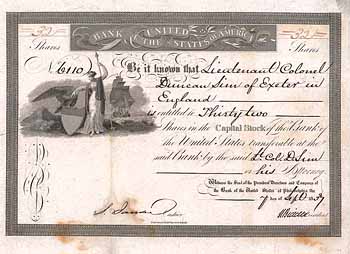 32 BANK OF THE UNITED STATES OF AMERICA 32
Shares Shares
No 6110 Be it known that Lieutenant Colonel
Duncan Sim of Exeter in
England
is entitled to Thirty two
Shares in the Capital Stock of the Bank of
the United States transferable at the
said Bank by the said Lt. Col. D. Sim
or his Attorney
Witness the Seal of the President Directors and Company of
the Bank of the United States at Philadelphia the
day of Sept 1837
Cashier N Biddle President